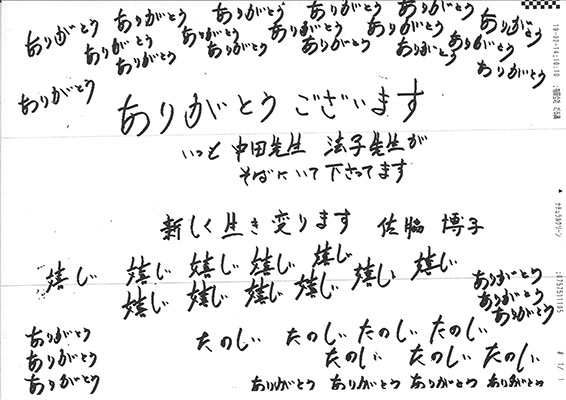 ありがとう ありがとう ありがとう ありがとう ありがとう ありがとう
ありがとう ありがとう ありがとう ありがとう ありがとう
ありがとう ありがとう ありがとう ありがとう ありがとう
ありがとう
ありがとうございます
いつも 中田先生 法子先生が
そばにいて下さってます
新しく生き変ります 佐脇 博子
嬉しい 嬉しい 嬉しい 嬉しい 嬉しい
嬉しい 嬉しい 嬉しい 嬉しい 嬉しい 嬉しい
ありがとう
ありがとう
ありがとう
たのしい たのしい たのしい たのしい
たのしい たのしい たのしい
ありがとう
ありがとう
ありがとう
ありがとう ありがとう ありがとう ありがとう
19-02-14;10:10
ナチュラルクリーン
;0757511105
# 1/ 1